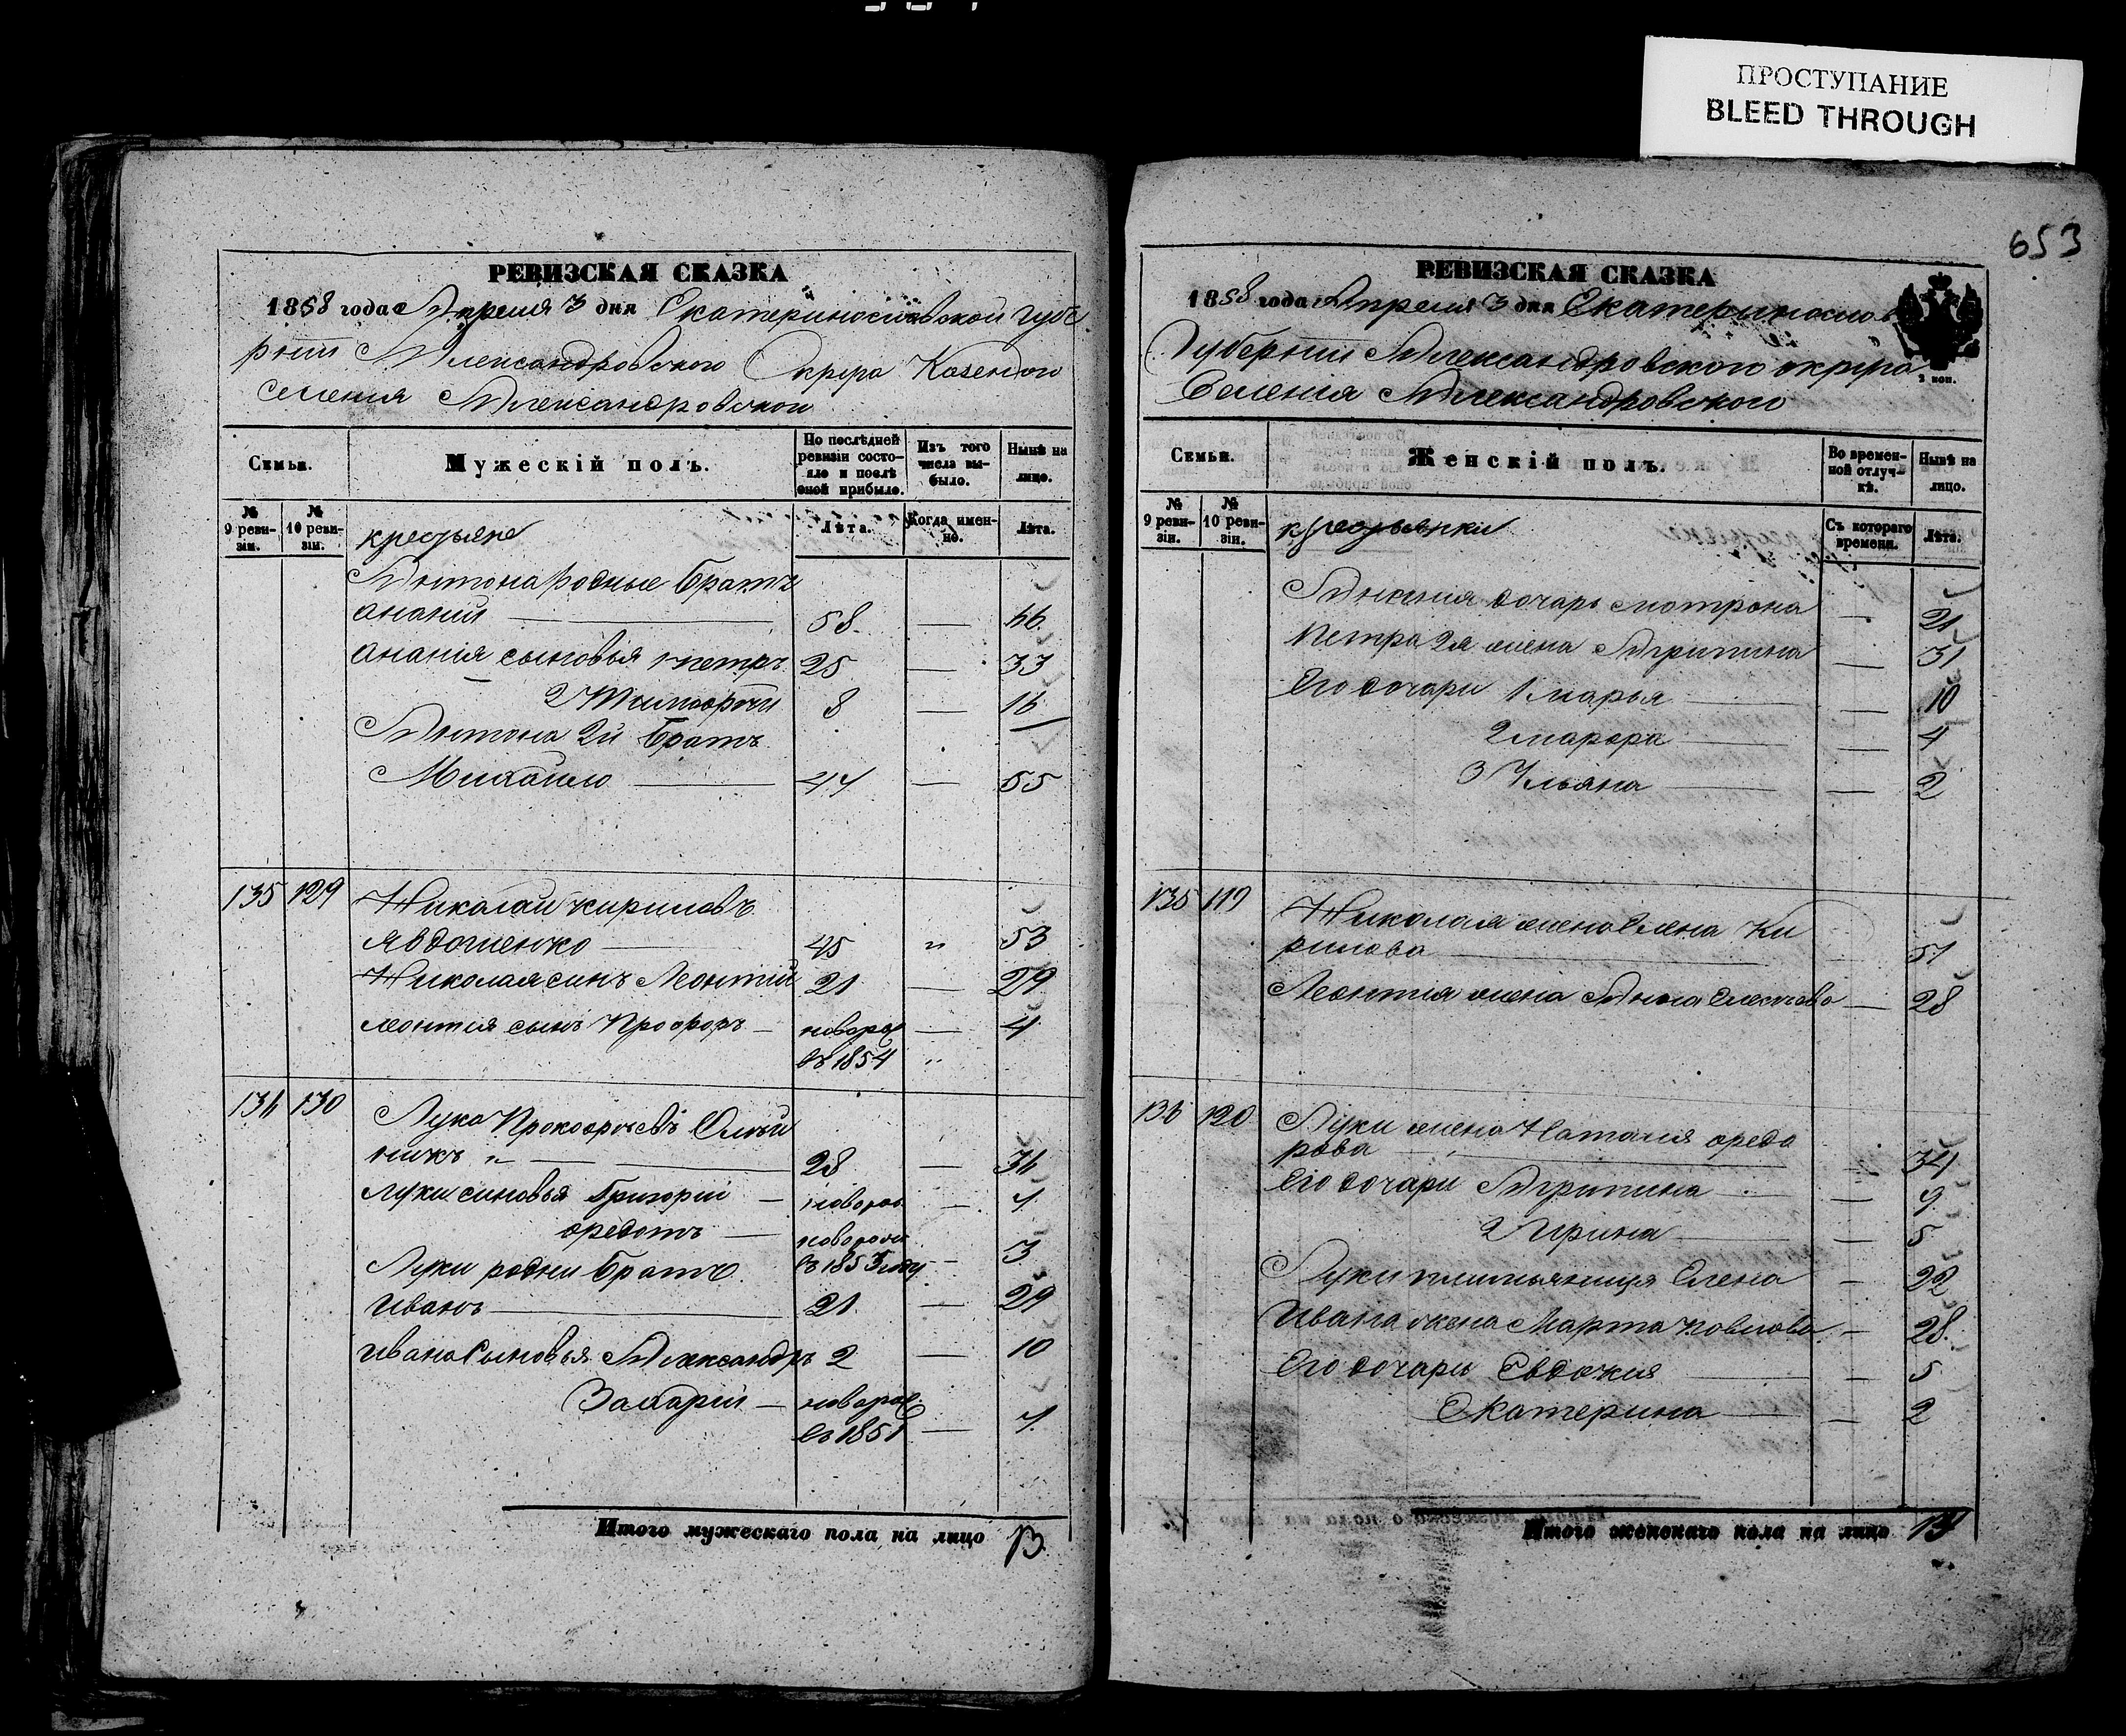 ПРОСТУПАНИЕ
BLEED THROUGH
653
РЕВИЗСКАЯ СКАЗКА
1858 года Апреля 3 дня Екатеринославской губе
рнии Александровского Округа Казенного
Селения Александровской
Семьи.
Мужескій полъ.
По послѣдней ревизіи состояло и послѣ оной прибыло.
Изъ того числа выбыло.
Нынѣ на лицо.
№ 9 ревизіи.
№ 10 ревизіи.
крестьяне
Лѣта.
Когда именно.
Лѣта.
Антона родные братъ
Ананий — 58. — 66.
Анания сыновья 1 петръ 25 — 33
2 Тимофей 8 — 16
Антона 2й братъ
Михайло — 47 — 55
135 129 Николай кириловъ
Явдошенко — 45 „ 53
Николая синъ Леонтий 21 — 29
леонтия сынъ Профоръ — новорож — 4
въ 1854 „
136 130 Лука Прокофьевъ Олий
никъ „ — 28 — 36
луки синовья Григорий — новорож — 7
федотъ — новорож
въ 1853 году — 3
Луки родни братъ
Иванъ — 21. — 29
ивана сыновья Александръ 2 — 10
Захарий — новорож
въ 1851 — 7.
Итого мужескаго пола на лицо 13.
РЕВИЗСКАЯ СКАЗКА
1858 года Апреля 3 дня Екатеринослав
Губернии Александровского округа
Селения Александровского
2 коп.
Семьи.
Женскій полъ.
Во временной отлучкѣ.
Нынѣ на лицо.
№ 9 ревизіи.
№ 10 ревизіи.
крестьянки
Съ котораго времени.
Лѣта.
дочарь мотрона — 21
Петра 2я жена Агрипина — 31
Его дочари 1 марья — 10
2 марфа — 4
3 Ульяна — 2
135 119 Николая жена Елена Ки
рилова — 51
Леонтия жена Анна — 28
136 120 Луки жена Наталия федо
рова — 34
Его дочари Агрипина — 9
2 Ирина — 5
Луки племьяница Елена — 22
Ивана жена Марта Павлова — 28.
Его дочарь Евдокия — 5
Екатерина — 2
Итого женскаго пола на лицо 14